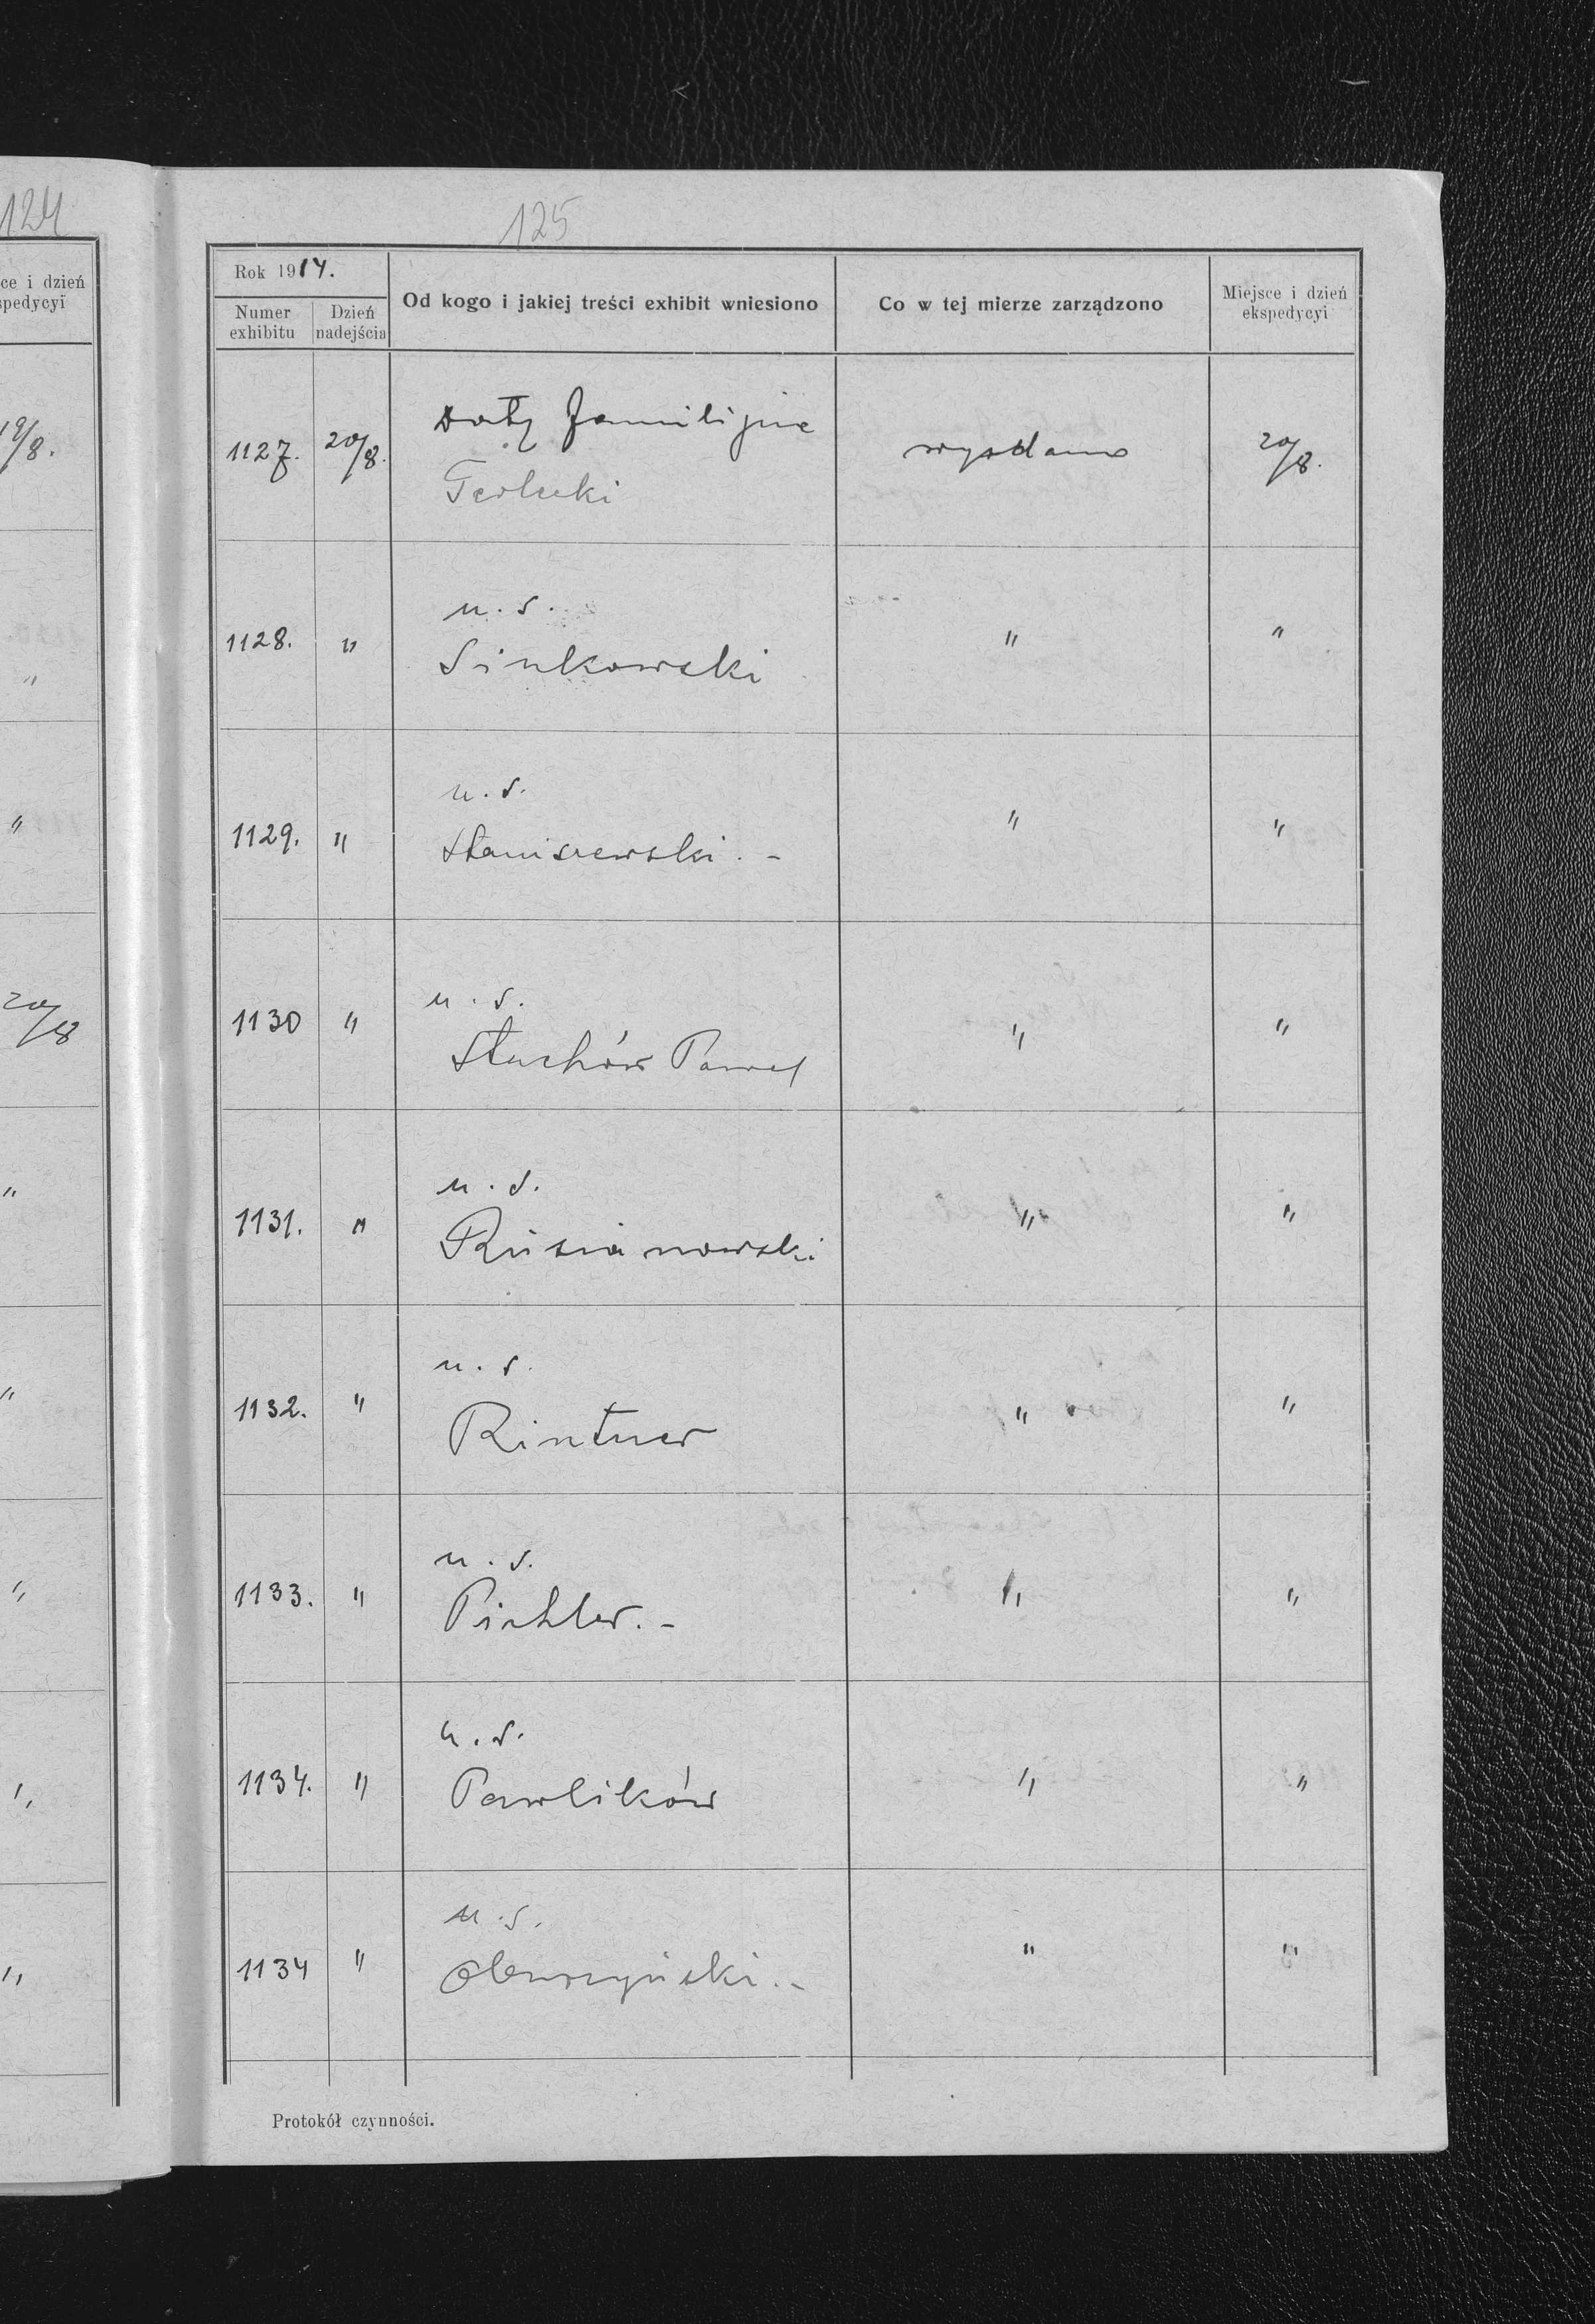 124
ce i dzień
spedycyi
19/8.
"
"
20/8
"
"
"
"
"
125
Rok 1914.
Numer exhibitu
Dzień nadejścia
Od kogo i jakiej treści exhibit wniesiono
Co w tej mierze zarządzono
Miejsce i dzień ekspedycyi
1127. 20/8. Daty familijne wysłano 20/8.
Terlecki
u. s.
1128. " Sinkowski " "
u. s.
1129. " Staniszewski. - " "
u. s.
1130 " Stuchów Paweł " "
u. s.
1131. " Rusianowski " "
u. s.
1132. " Rintner " "
u. s.
1133. " Pichler. - " "
u. s.
1134. " Pawlików " "
u. s.
1134 " " "
Protokół czynności.